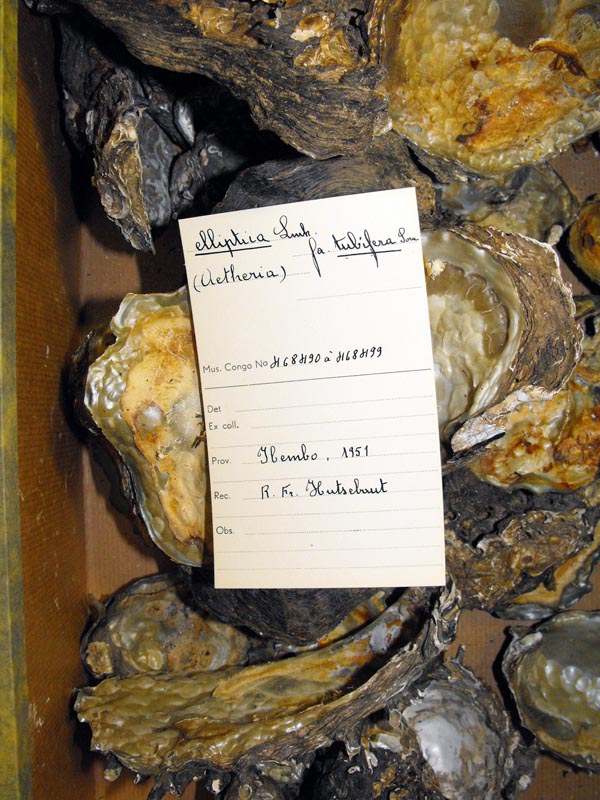 elliptica Lmk.
fa. tubifera Sow
(Aetheria)
Mus. Congo No 468490 à 468499
Det
Ex coll.
Prov. Ibembo, 1951
Rec. R. Fr. Hutsebaut
Obs.